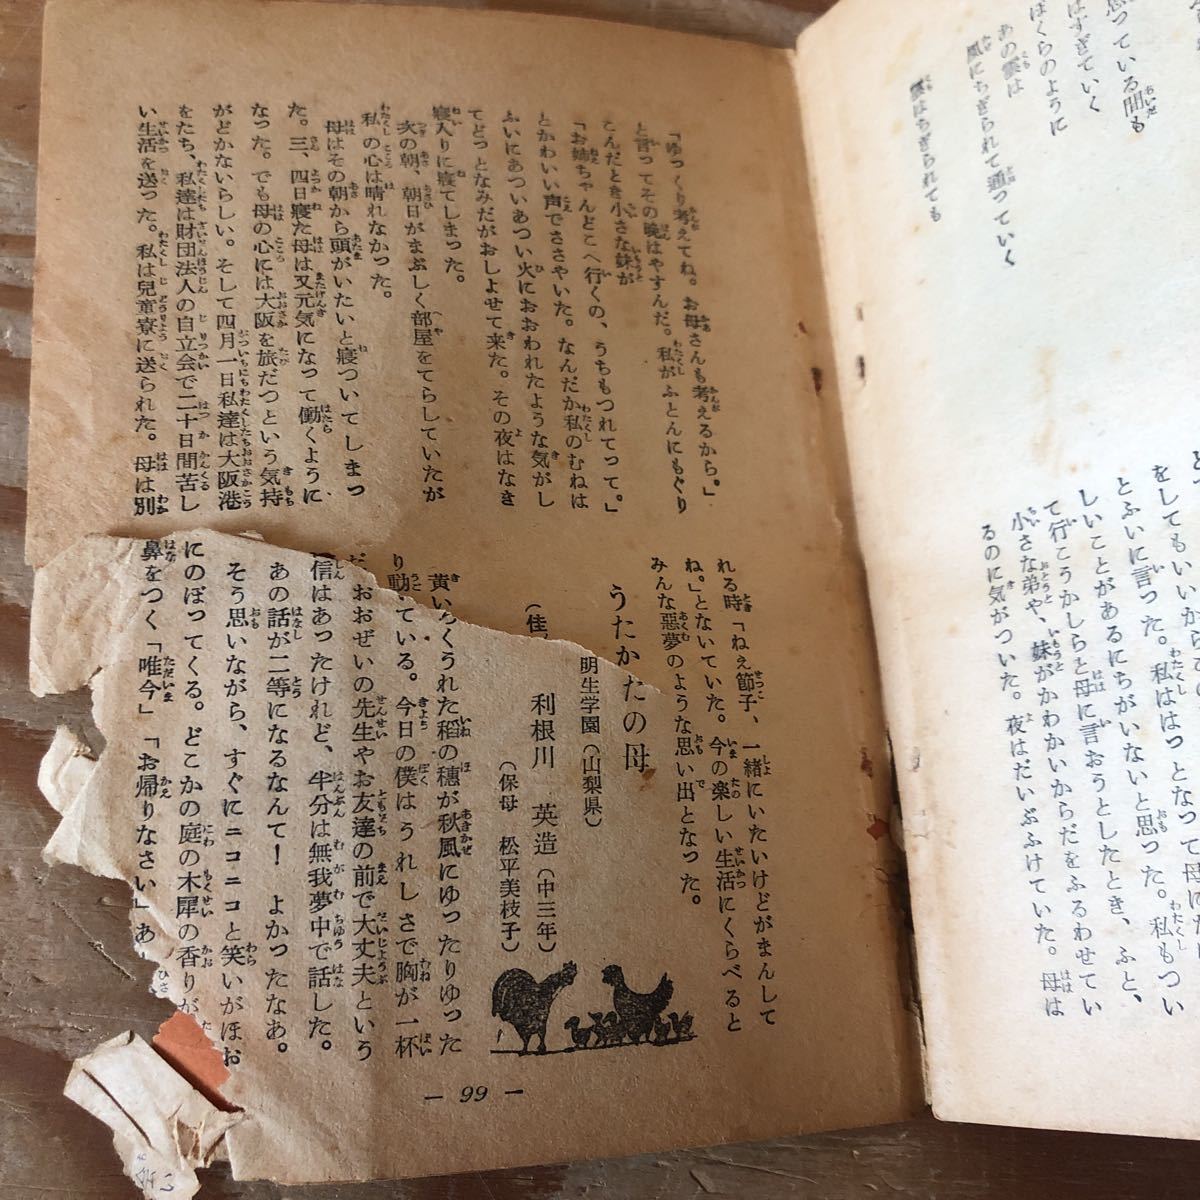 思つている間も
はすぎていく
ぼくらのように
あの雲は
風にちぎられて通つていく
雲はちぎられても
をしてもいいから
とふいに言った。私ははっとなって母に
しいことがあるにちがいないと思った。私もつい
て行こうかしらと母に言おうとしたとき、ふと、
小さな弟や、妹がかわかいからだをふるわせてい
るのに気がついた。夜はだいぶふけていた。母は
「ゆっくり考えてね。お母さんも考えるから。」
と言ってその晩はやすんだ。私がふとんにもぐり
こんだとき小さな妹が
「お姉ちゃんどこへ行くの、うちもつれてって。」
とかわいい声でささやいた。なんだか私のむねは
ふいにあついあつい火におおわれたような気がし
てどっとなみだがおしよせて来た。その夜はなき
寝入りに寝てしまった。
次の朝、朝日がまぶしく部屋をてらしていたが
私の心は晴れなかった。
母はその朝から頭がいたいと寝ついてしまっ
た。三、四日寝た母は又元気になって働くように
なった。でも母の心には大阪を旅だつという気持
がどかないらしい。そして四月一日私達は大阪港
をたち、私達は財団法人の自立会で二十日間苦し
い生活を送った。私は兒童寮に送られた。母は別
れる時「ねえ節子、一緒にいたいけどがまんして
ね。」とないていた。今の楽しい生活にくらべると
みんな惡夢のような思い出となった。
うたかたの母
(佳
明生学園(山梨県)
利根川 英造(中三年)
(保母 松平美枝子)
黄いろくうれた稻の穗が秋風にゆったりゆった
り動いている。今日の僕はうれしさで胸が一杯
だ。おおぜいの先生やお友達の前で大丈夫という
信はあったけれど、半分は無我夢中で話した。
あの話が二等になるなんて! よかったなあ。
そう思いながら、すぐにニコニコと笑いがほお
にのぼってくる。どこかの庭の木犀の香りが
鼻をつく「唯今」「お帰りなさい」あ
— 99 —